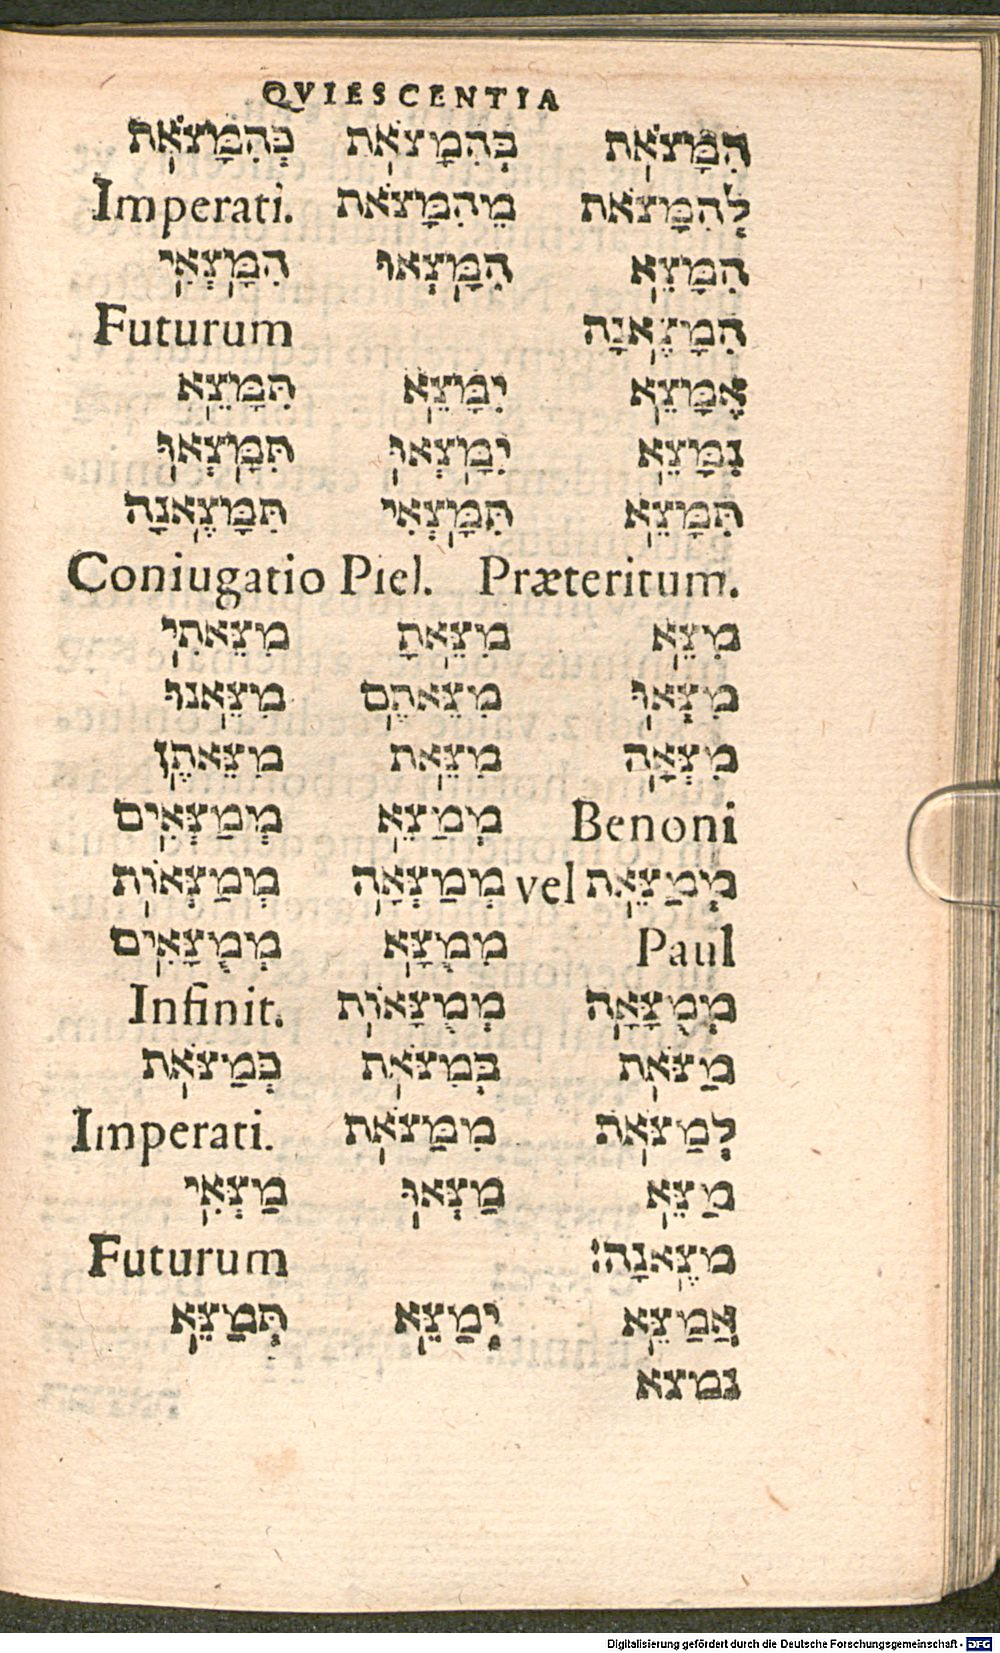 QVIESCENTIA
הִמָּצֹאת בְּהִמָּצֹאת כְּהִמָּצֹאת
לְהִמָּצֹאת מֵהִמָּצֹאת Imperati.
הִמָּצֵא הִמָּצְאוּ הִמָּצְאִי
הִמָּצֶאנָה Futurum
אֶמָּצֵא יִמָּצֵא תִּמָּצֵא
נִמָּצֵא יִמָּצְאוּ תִּמָּצְאוּ
תִּמָּצֵא תִּמָּצְאִי תִּמָּצֶאנָה
Coniugatio Piel. Præteritum.
מִצֵּא מִצֵּאתָ מִצֵּאתִי
מִצְּאוּ מִצֵּאתֶם מִצֵּאנוּ
מִצְּאָה מִצֵּאת מִצֵּאתֶן
Benoni מְמַצֵּא מְמַצְּאִים
מְמַצֵּאת vel מְמַצְּאָה מְמַצְּאוֹת
Paul מְמֻצָּא מְמֻצָּאִים
מְמֻצָּאָה מְמֻצָּאוֹת Infinit.
מַצֹּאת בְּמַצֹּאת כְּמַצֹּאת
לְמַצֹּאת מִמַּצֹּאת Imperati.
מַצֵּא מַצְּאוּ מַצְּאִי
מַצֶּאנָה: Futurum
אֲמַצֵּא יְמַצֵּא תְּמַצֵּא
נמצא
Digitalisierung gefördert durch die Deutsche Forschungsgemeinschaft - DFG